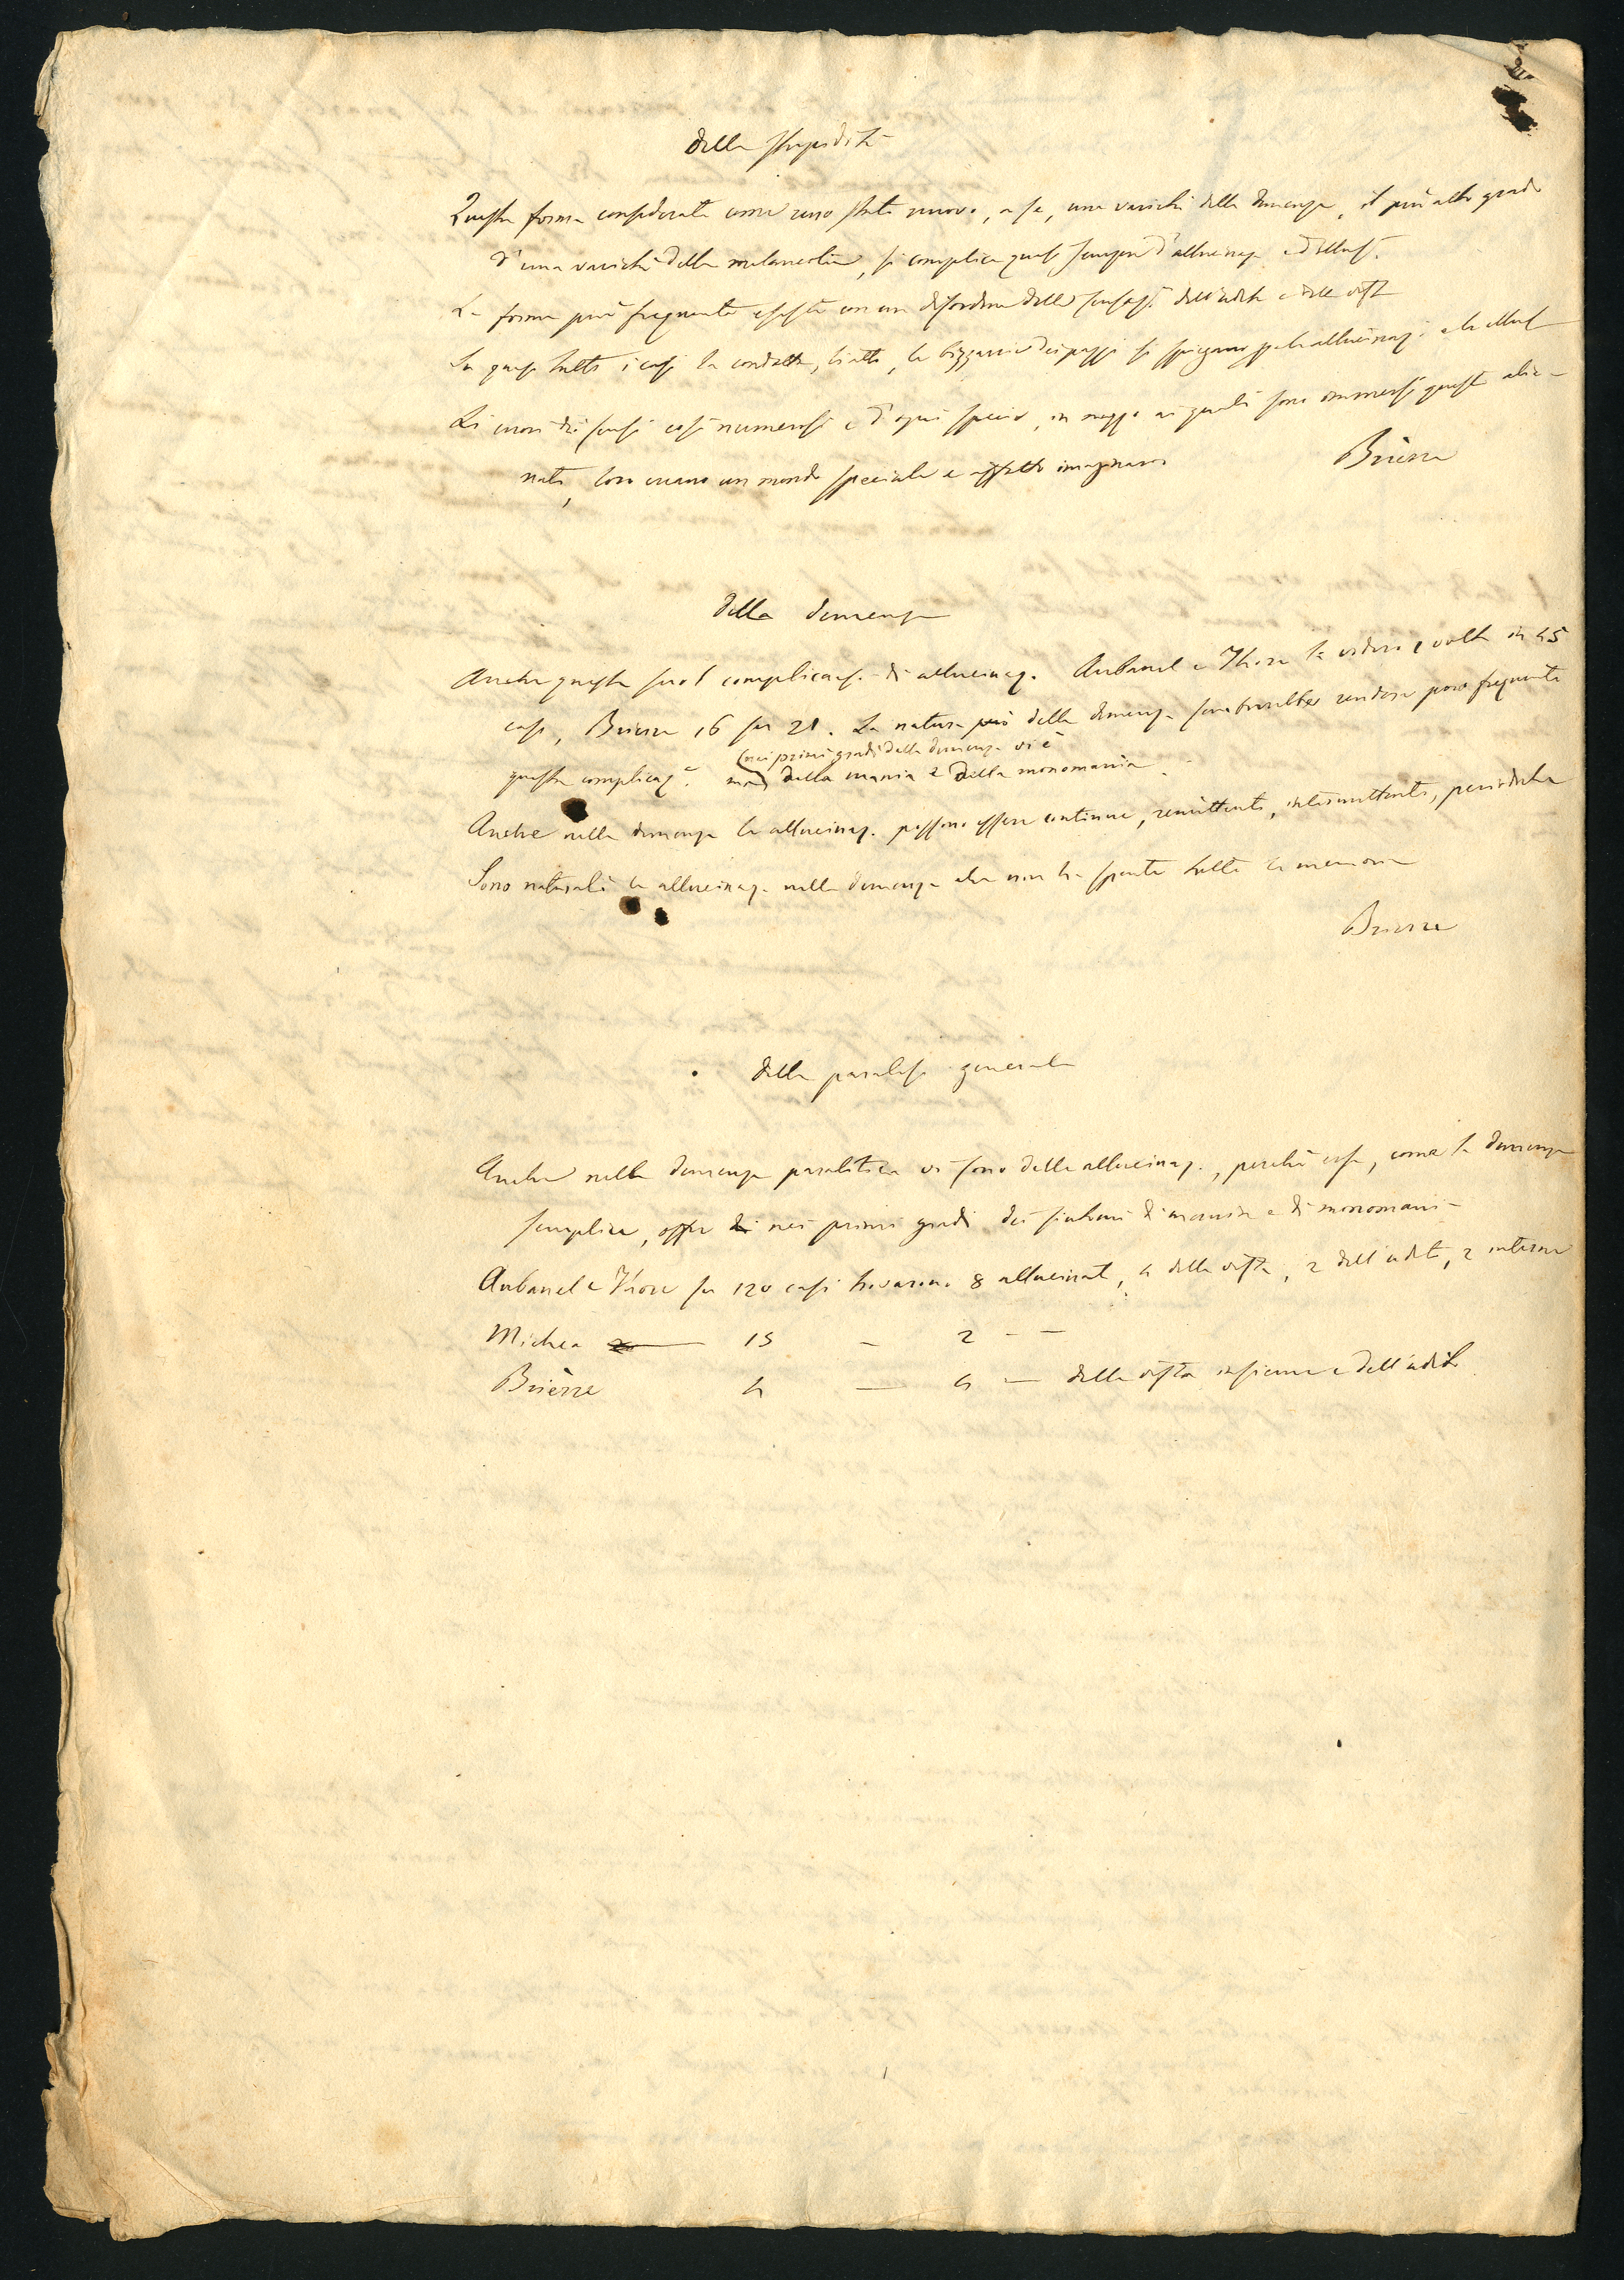 Della stupidità
Questa forma considerata come uno stato nuovo, a se, una varietà della demenza, il più alto grado
d'una varietà della melancolia, si complica quasi sempre d'allucinaz. e d'illus.
La forma più frequente esiste con un disordine delle sensaz. dell'udito e della vista
In quasi tutti i casi la condotta, li atti, le bizzarrie dei pazzi si spiegano per le allucinaz. e le illus.
Li errori dei sensi così numerosi e d'ogni specie, in mezzo ai quali sono immersi questi alie-
nati, loro creano un mondo speciale e affatto imaginario
Brierre
Della demenza
Anche questa suol complicarsi di allucinaz. Aubanel e Thore la videro volte in 45
casi, Brierre 16 su 21. La natura però della demenza sembrerebbe rendere poco frequente
questa complicaz.e ma (nei primi gradi della demenza vi è
della mania e della monomania.
Anche nella demenza le allucinaz. possono essere continue, remittenti, intermittenti, periodiche
Sono naturali le allucinaz. nella demenza che non ha spenta tutta la memoria
Brierre
Della paralisi generale
Anche nella demenza paralitica vi sono delle allucinaz., perchè essa, come la demenza
semplice, offre nei primi gradi dei sintomi di mania e di monomania
Aubanel e Thore su 120 casi trovarono 8 allucinati, 4 della vista, 2 dell'udito, 2 interne
Michea — 15 — 2 — —
Brierre 4 — 4 — della vista insieme e dell'udito